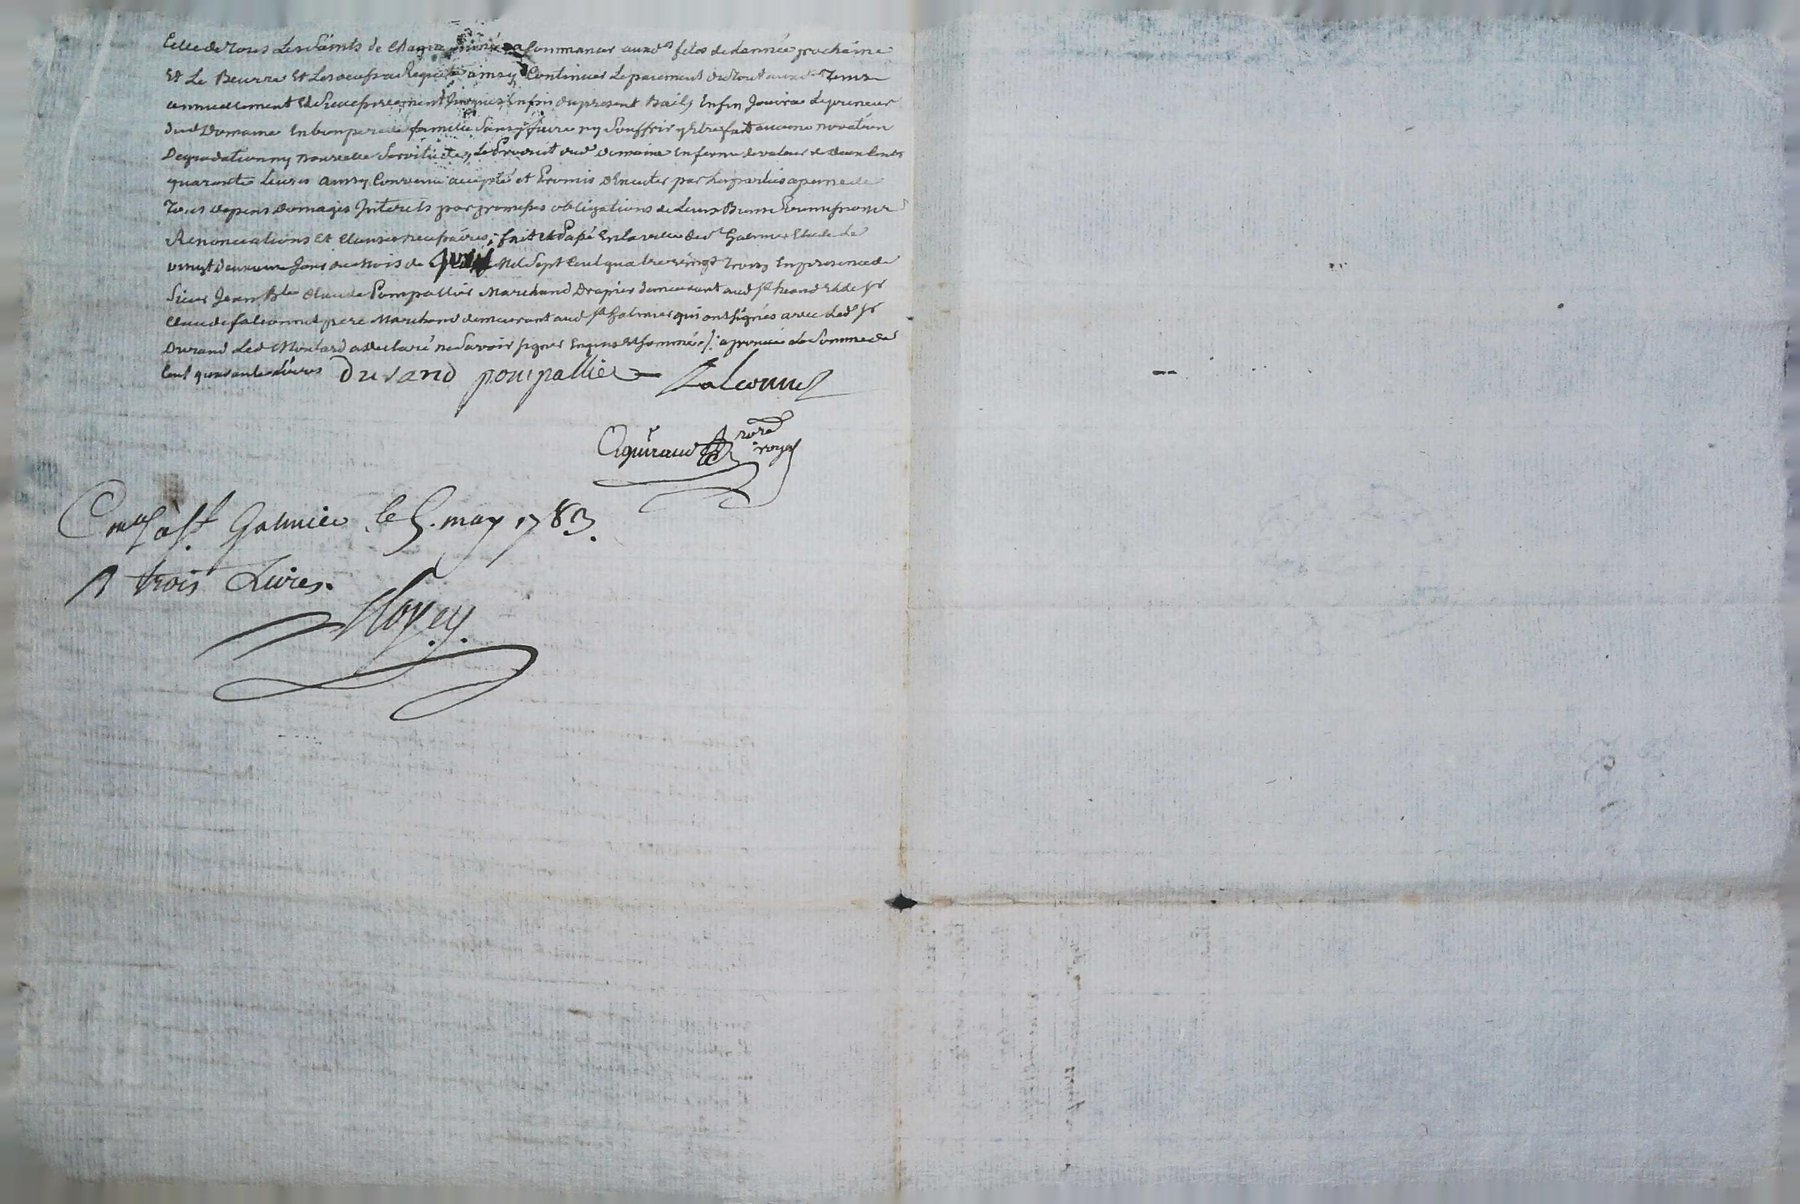 Celle de Tous Les Saints de Chaque année a Commancer auxd.es fetes de Lannée prochaine
Et Le Beurre Et Les oeufs a Requete ainsy Continuer Le paiement du tout auxd. Tems
annuellement Et Successivement jusques En fin du present Bail, Enfin Jouira Le preneur
dud Domaine En bon pere de famille Sans y faire ny Souffrir y Etre fait aucune novation
Degradation ny nouvelle Servitude, Le Produit dud Domaine En ferme de valeur de deux Cents
quarante Livres ainsy Convenu accepté et Promis Executer par Les parties a peine de
Tous depens domages Interets par promesses obligations de Leurs Biens
Renonciations Et Clauses necessaires; fait et Passé En la ville de St Galmier Etude Le
vingt jour du mois de Mil Sept Cent quatre vingt Trois En presence de
Sieur Jean Bte Claude Pompallier Marchand Drapier demeurant aud St heand Et de Sr
Claude falconnet pere Marchand demeurant aud St Galmier qui ont signés avec Led Sr
Durand Led a declaré ne Savoir signer Enquis Et sommé a La Somme de
Cent quarante Livres Durand pompallier falconnet
Aguiraud nore royal
Con.lé à St Galmier le 5. may 1783.
R trois Livres.